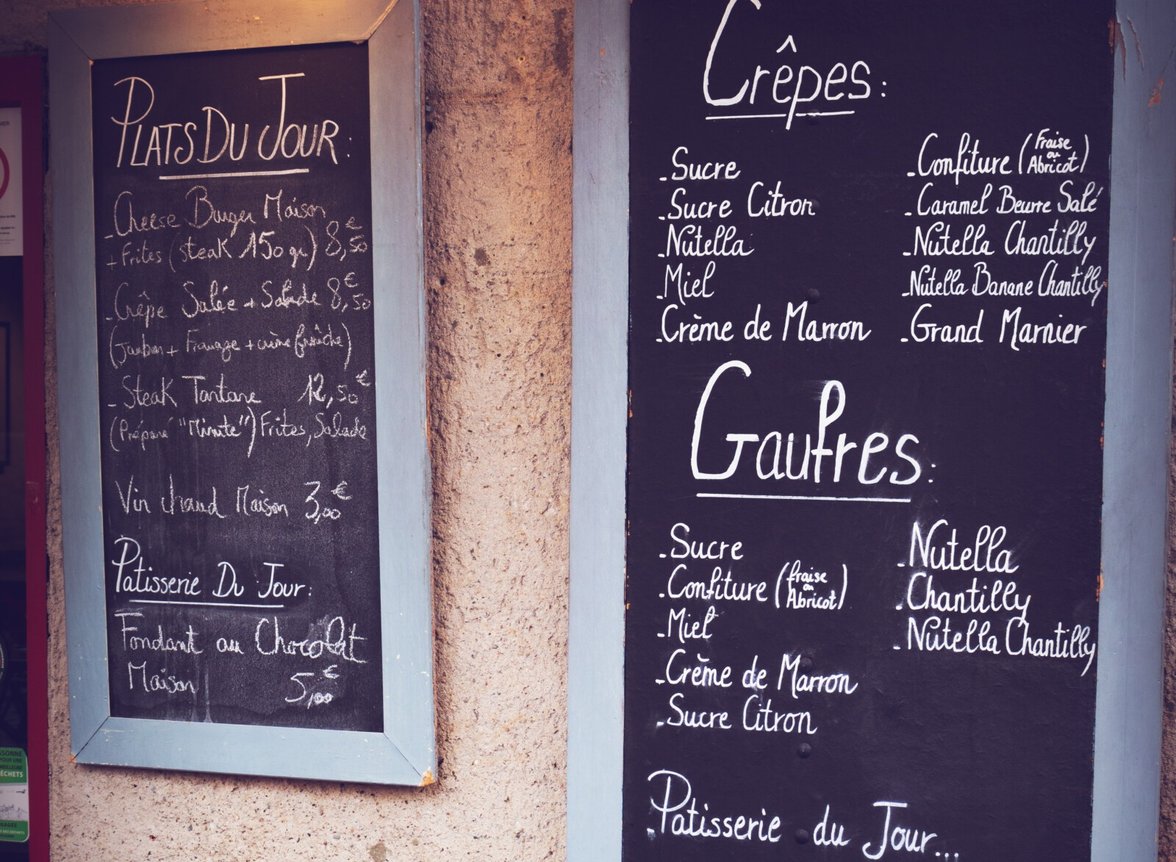 PLATS DU JOUR :
- Cheese Burger Maison
+ Frites (steak 150 gr) 8,50€
- Crêpe Salée + Salade 8,50€
(Jambon + Fromage + crème fraîche)
- Steak Tartare 12,50€
(Préparé "Minute") Frites, Salade
Vin chaud Maison 3,00€
Patisserie Du Jour :
Fondant au Chocolat
Maison 5,00€
Crêpes :
- Sucre
- Sucre Citron
- Nutella
- Miel
- Crème de Marron
- Confiture (Fraise ou Abricot)
- Caramel Beurre Salé
- Nutella Chantilly
- Nutella Banane Chantilly
- Grand Marnier
Gaufres :
- Sucre
- Confiture (fraise ou Abricot)
- Miel
- Crème de Marron
- Sucre Citron
- Nutella
- Chantilly
- Nutella Chantilly
- Patisserie du Jour...